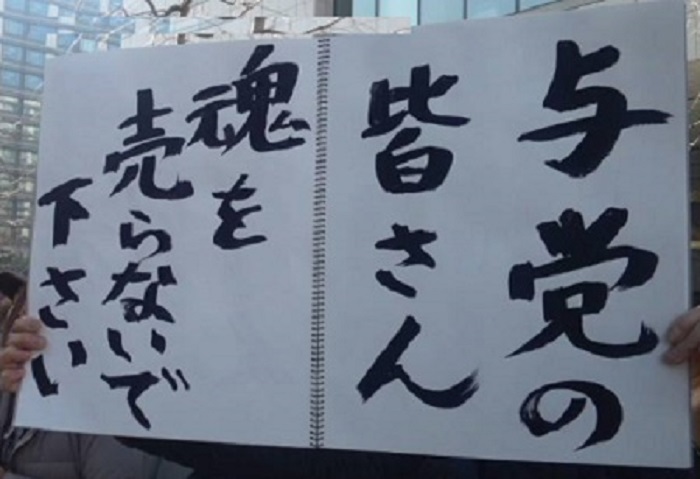 与党の
皆さん
魂を
売らないで
下さい